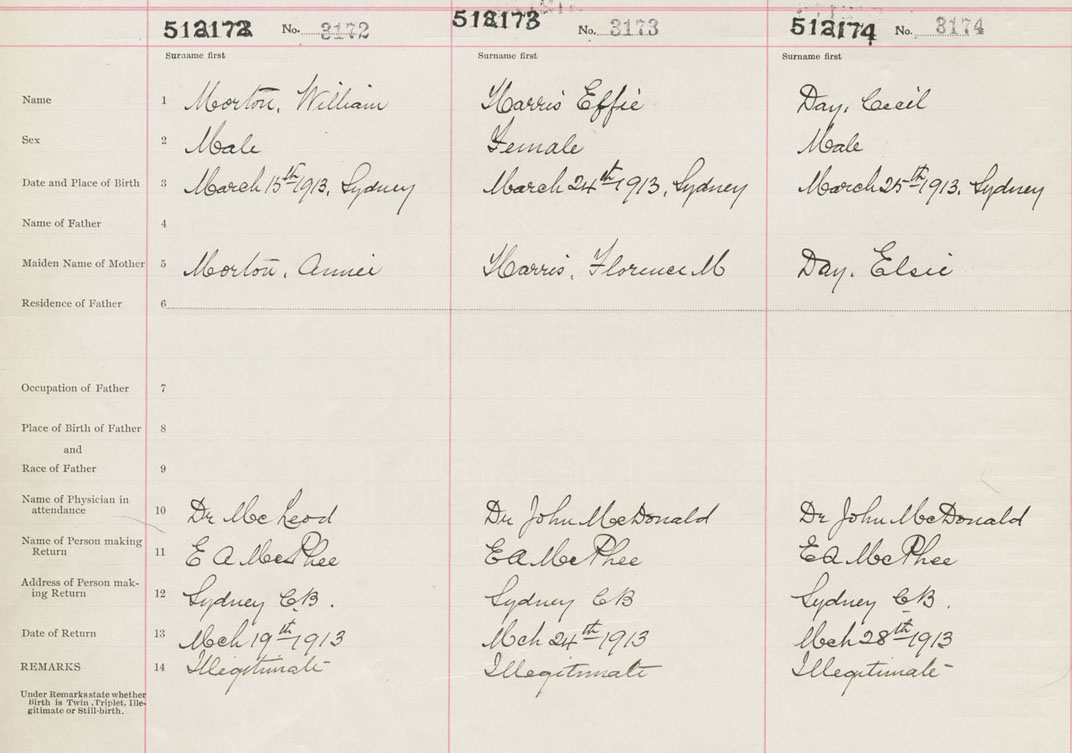 512172 No. 3172 512173 No. 3173 512174 No. 3174
Surname first Surname first Surname first
Name 1 Morton, William Harris Effie Day, Cecil
Sex 2 Male Female Male
Date and Place of Birth 3 March 15th 1913, Sydney March 24th 1913, Sydney March 25th 1913, Sydney
Name of Father 4
Maiden Name of Mother 5 Morton, Annie Harris, Florence M Day, Elsie
Residence of Father 6
Occupation of Father 7
Place of Birth of Father 8
and
Race of Father 9
Name of Physician in
attendance 10 Dr McLeod Dr John McDonald Dr John McDonald
Name of Person making
Return 11 E A McPhee E A McPhee E A McPhee
Address of Person mak-
ing Return 12 Sydney CB. Sydney CB Sydney CB.
Date of Return 13 Mch 19th 1913 Mch 24th 1913 Mch 28th 1913
REMARKS 14 Illegitimate Illegitimate Illegitimate
Under Remarks state whether
Birth is Twin, Triplet, Ille-
gitimate or Still-birth.